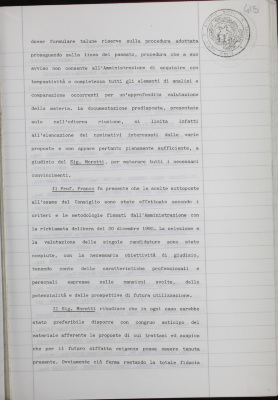 dover formulare talune riserve sulla procedura adottata
proseguendo sulla linea del passato, procedura che a suo
avviso non consente all'Amministrazione di acquisire con
tempestività e completezza tutti gli elementi di analisi e
comparazione occorrenti per un'approfondita valutazione
della materia. La documentazione predisposta, presentata
solo nell'odierna riunione, si limita infatti
all'elencazione dei nominativi interessati dalle varie
proposte e non appare pertanto pienamente sufficiente, a
giudizio del Sig. Moretti, per maturare tutti i necessari
convincimenti.
Il Prof. Franco fa presente che le scelte sottoposte
all'esame del Consiglio sono state effettuate secondo i
criteri e le metodologie fissati dall'Amministrazione con
la richiamata delibera del 30 dicembre. La selezione e
la valutazione delle singole candidature sono state
compiute, con la necessaria obiettività di giudizio,
tenendo conto delle caratteristiche professionali e
personali espresse nelle mansioni svolte, delle
potenzialità e delle prospettive di futura utilizzazione.
Il Sig. Moretti ribadisce che in ogni caso sarebbe
stato preferibile disporre con congruo anticipo del
materiale afferente le proposte di cui trattasi ed auspica
che per il futuro siffatta esigenza possa essere tenuta
presente. Ovviamente ciò ferma restando la totale fiducia